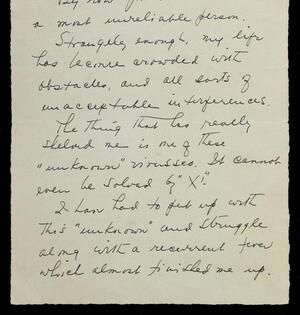 a most unreliable person.
Strangely enough, my life
has become crowded with
obstacles, and all sorts of
unacceptable interferences.
The thing that has really
shelved me is one of these
"unknown" virusses. It cannot
even be solved by "X".
I have had to put up with
this "unknown" and struggle
along with a recurrent fever
which almost finished me up.